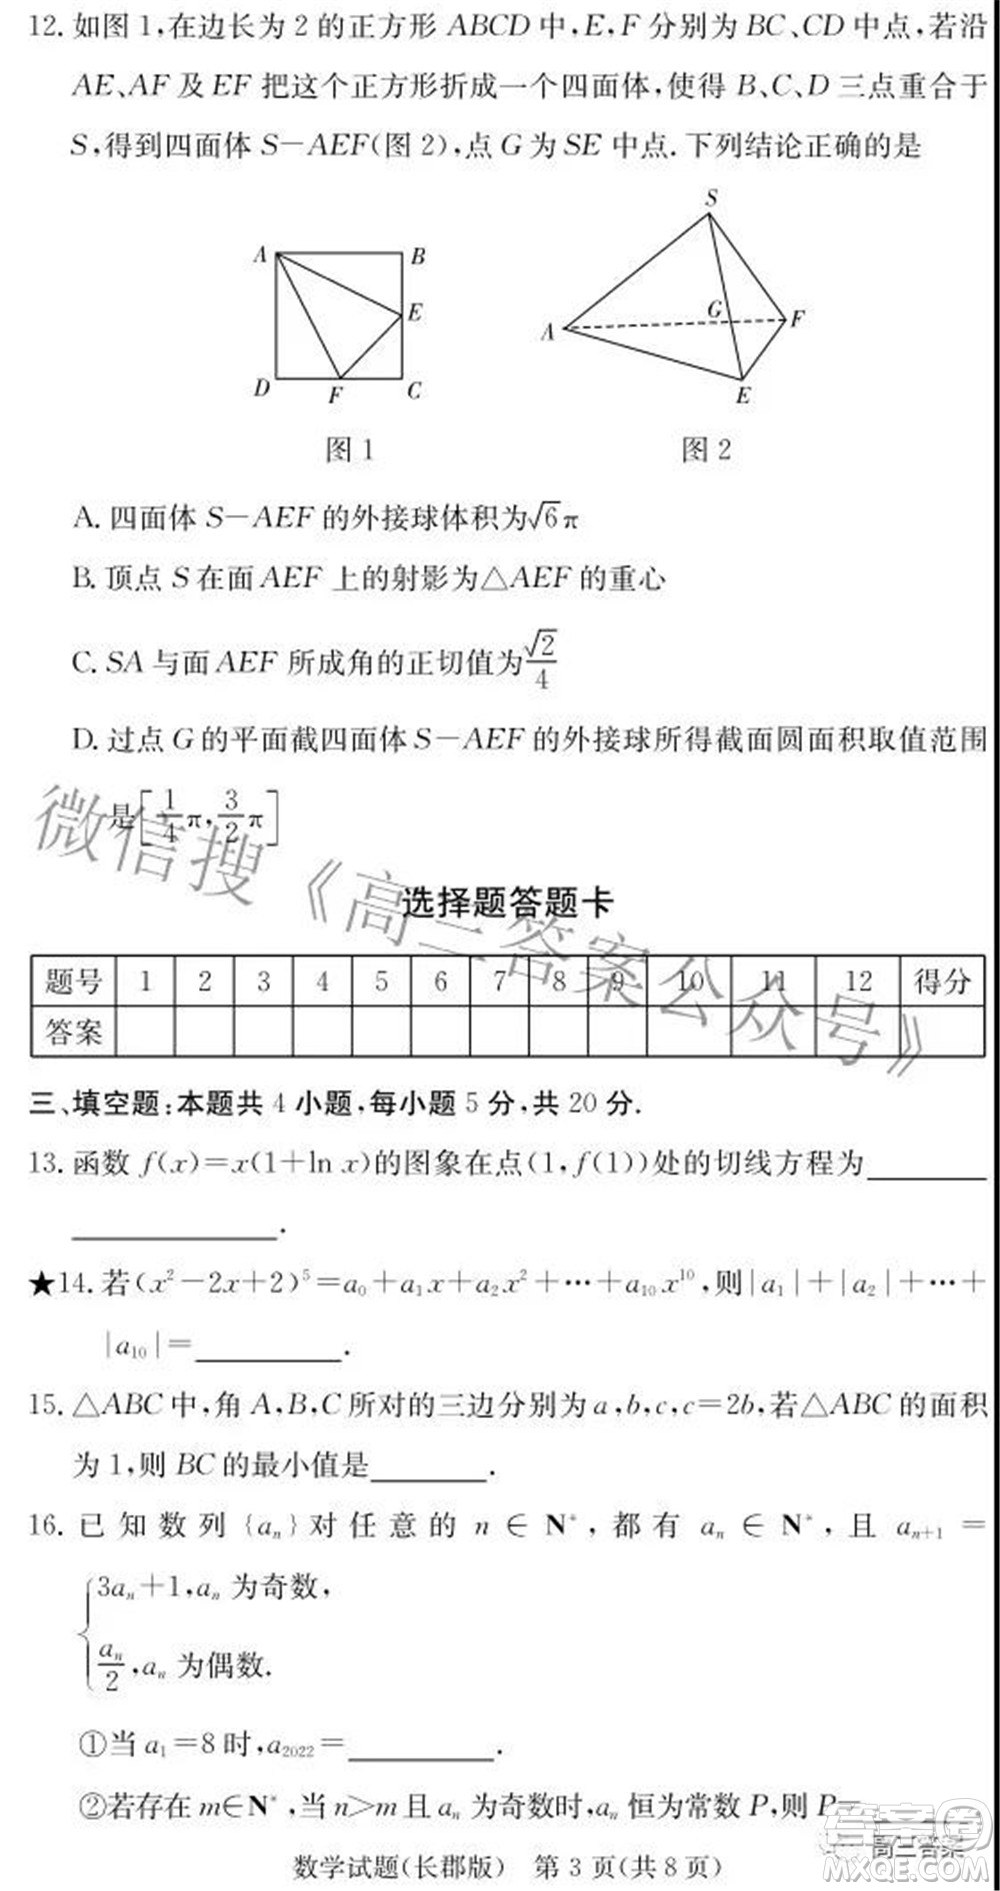 12. 如图 1,在边长为 2 的正方形 ABCD 中,E,F 分别为 BC、CD 中点,若沿
AE、AF 及 EF 把这个正方形折成一个四面体,使得 B、C、D 三点重合于
S,得到四面体 S-AEF(图 2),点 G 为 SE 中点. 下列结论正确的是
A B E D F C
S A G F E
图 1 图 2
A. 四面体 S-AEF 的外接球体积为√6π
B. 顶点 S 在面 AEF 上的射影为△AEF 的重心
C. SA 与面 AEF 所成角的正切值为√2/4
D. 过点 G 的平面截四面体 S-AEF 的外接球所得截面圆面积取值范围
是[1/4 π, 3/2 π]
微信搜《高三答案公众号》
选择题答题卡
题号 1 2 3 4 5 6 7 8 9 10 11 12 得分
答案
三、填空题:本题共 4 小题,每小题 5 分,共 20 分.
13. 函数 f(x)=x(1+ln x)的图象在点(1,f(1))处的切线方程为________
____________.
★14. 若(x²-2x+2)⁵=a₀+a₁x+a₂x²+…+a₁₀x¹⁰,则|a₁|+|a₂|+…+
|a₁₀|=________.
15. △ABC 中,角 A,B,C 所对的三边分别为 a,b,c,c=2b,若△ABC 的面积
为 1,则 BC 的最小值是________.
16. 已知数列{aₙ}对任意的 n∈N*,都有 aₙ∈N*,且 aₙ₊₁=
{3aₙ+1,aₙ 为奇数,
aₙ/2,aₙ 为偶数.
①当 a₁=8 时,a₂₀₂₂=________.
②若存在 m∈N*,当 n>m 且 aₙ 为奇数时,aₙ 恒为常数 P,则 P=________.
数学试题(长郡版) 第 3 页(共 8 页)
高三答案
答案圈
MXQE.COM